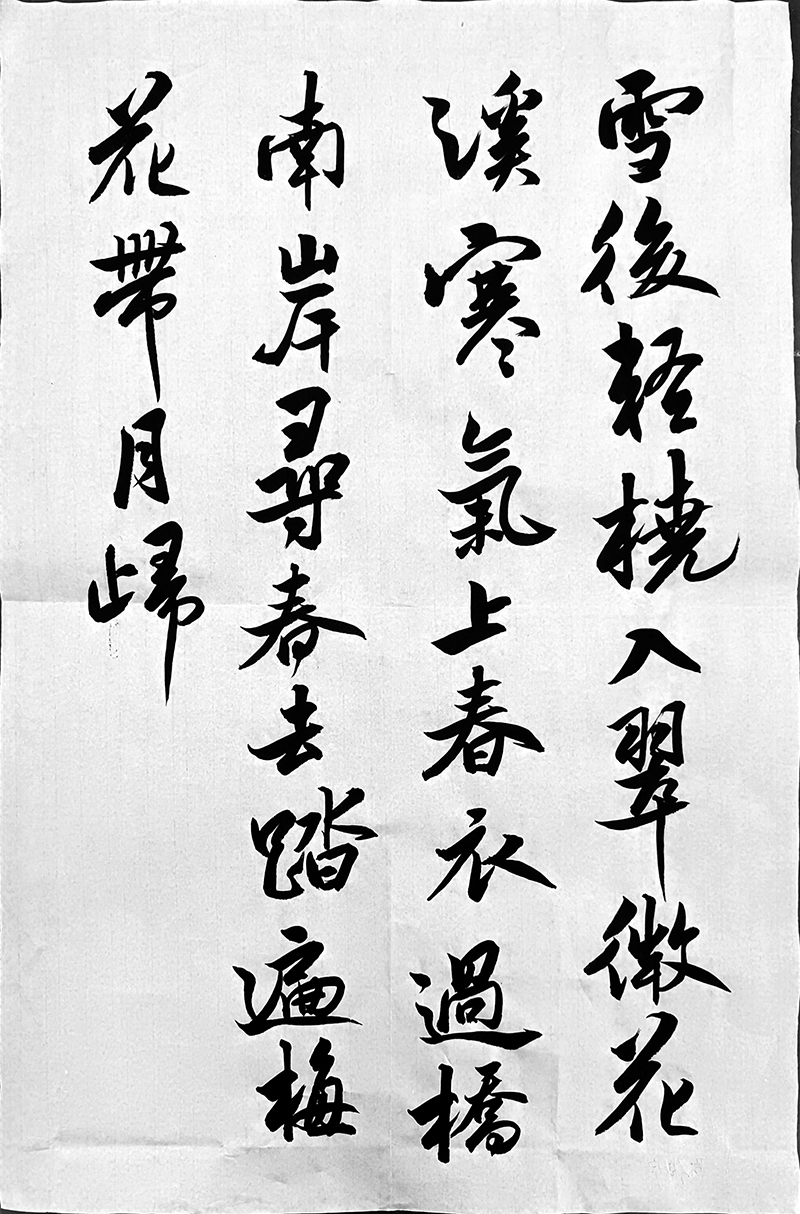 雪後輕橈入翠微花
溪寒氣上春衣過橋
南岸尋春去踏遍梅
花帶月歸